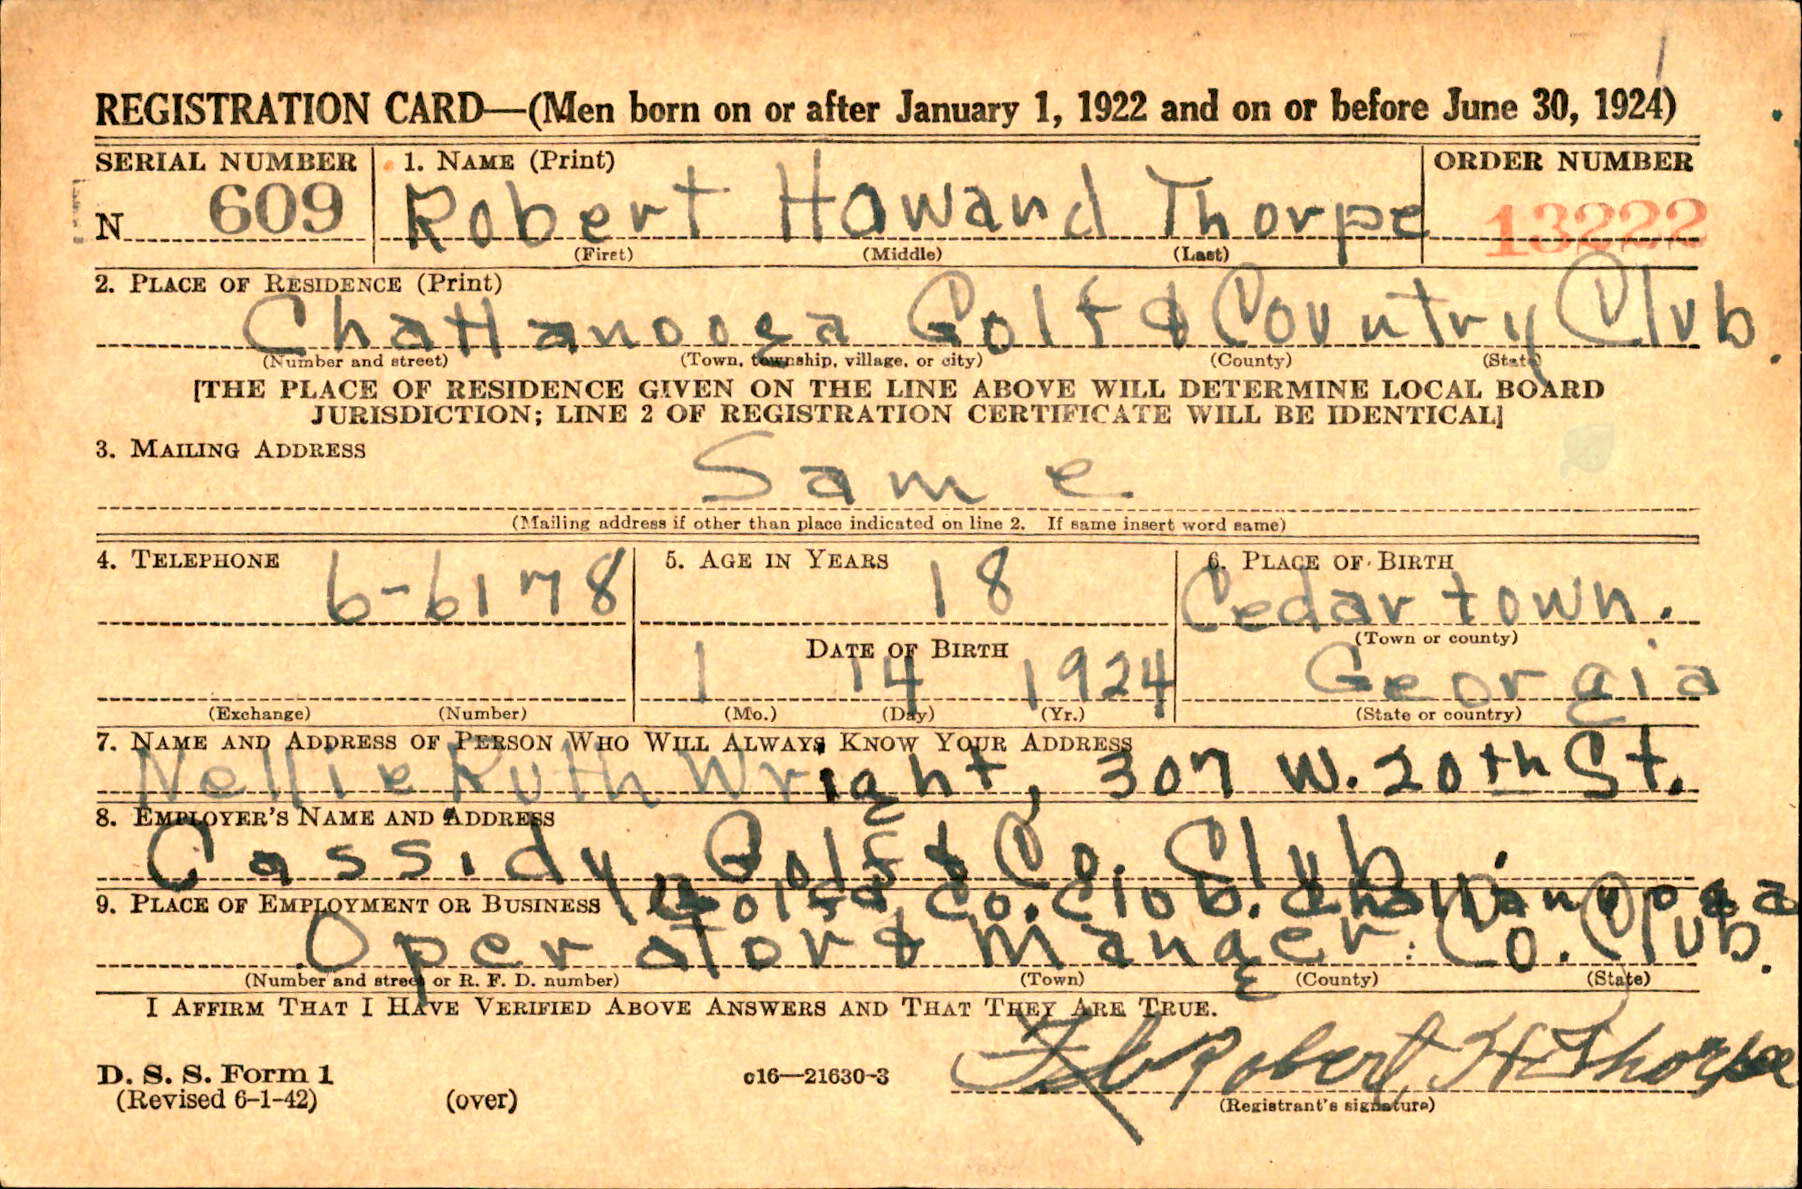 REGISTRATION CARD—(Men born on or after January 1, 1922 and on or before June 30, 1924)
SERIAL NUMBER 1. NAME (Print) ORDER NUMBER
N 609 Robert Howard Thorpe 13222
(First) (Middle) (Last)
2. PLACE OF RESIDENCE (Print)
Chattanooga Golf & Country Club.
(Number and street) (Town, township, village, or city) (County) (State)
[THE PLACE OF RESIDENCE GIVEN ON THE LINE ABOVE WILL DETERMINE LOCAL BOARD
JURISDICTION; LINE 2 OF REGISTRATION CERTIFICATE WILL BE IDENTICAL]
3. MAILING ADDRESS
Same
(Mailing address if other than place indicated on line 2. If same insert word same)
4. TELEPHONE 5. AGE IN YEARS 6. PLACE OF BIRTH
6-6178 18 Cedartown.
(Town or county)
DATE OF BIRTH
1 14 1924 Georgia
(Exchange) (Number) (Mo.) (Day) (Yr.) (State or country)
7. NAME AND ADDRESS OF PERSON WHO WILL ALWAYS KNOW YOUR ADDRESS
Nellie Ruth Wright, 307 W. 20th St.
8. EMPLOYER'S NAME AND ADDRESS
Cassidy Golf & Co. Club
9. PLACE OF EMPLOYMENT OR BUSINESS Golf & Co. Club. Chattanooga
Operator & Manger. Co. Club.
(Number and street or R. F. D. number) (Town) (County) (State)
I AFFIRM THAT I HAVE VERIFIED ABOVE ANSWERS AND THAT THEY ARE TRUE.
D. S. S. Form 1 c16—21630-3 Robert H Thorpe
(Revised 6-1-42) (over) (Registrant's signature)